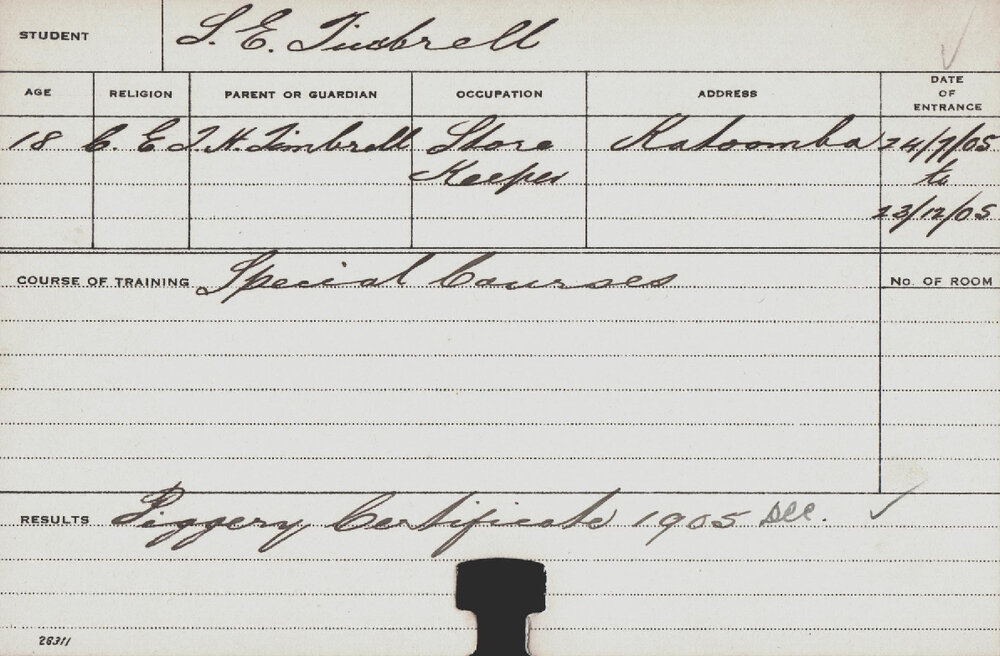 STUDENT S. E. Timbrell
AGE RELIGION PARENT OR GUARDIAN OCCUPATION ADDRESS DATE OF ENTRANCE
18 C. E J. H. Timbrell Store Katoomba 24/7/05
Keeper to
23/12/05
COURSE OF TRAINING Special Courses No. OF ROOM
RESULTS Piggery Certificate 1905 Dec.
28311